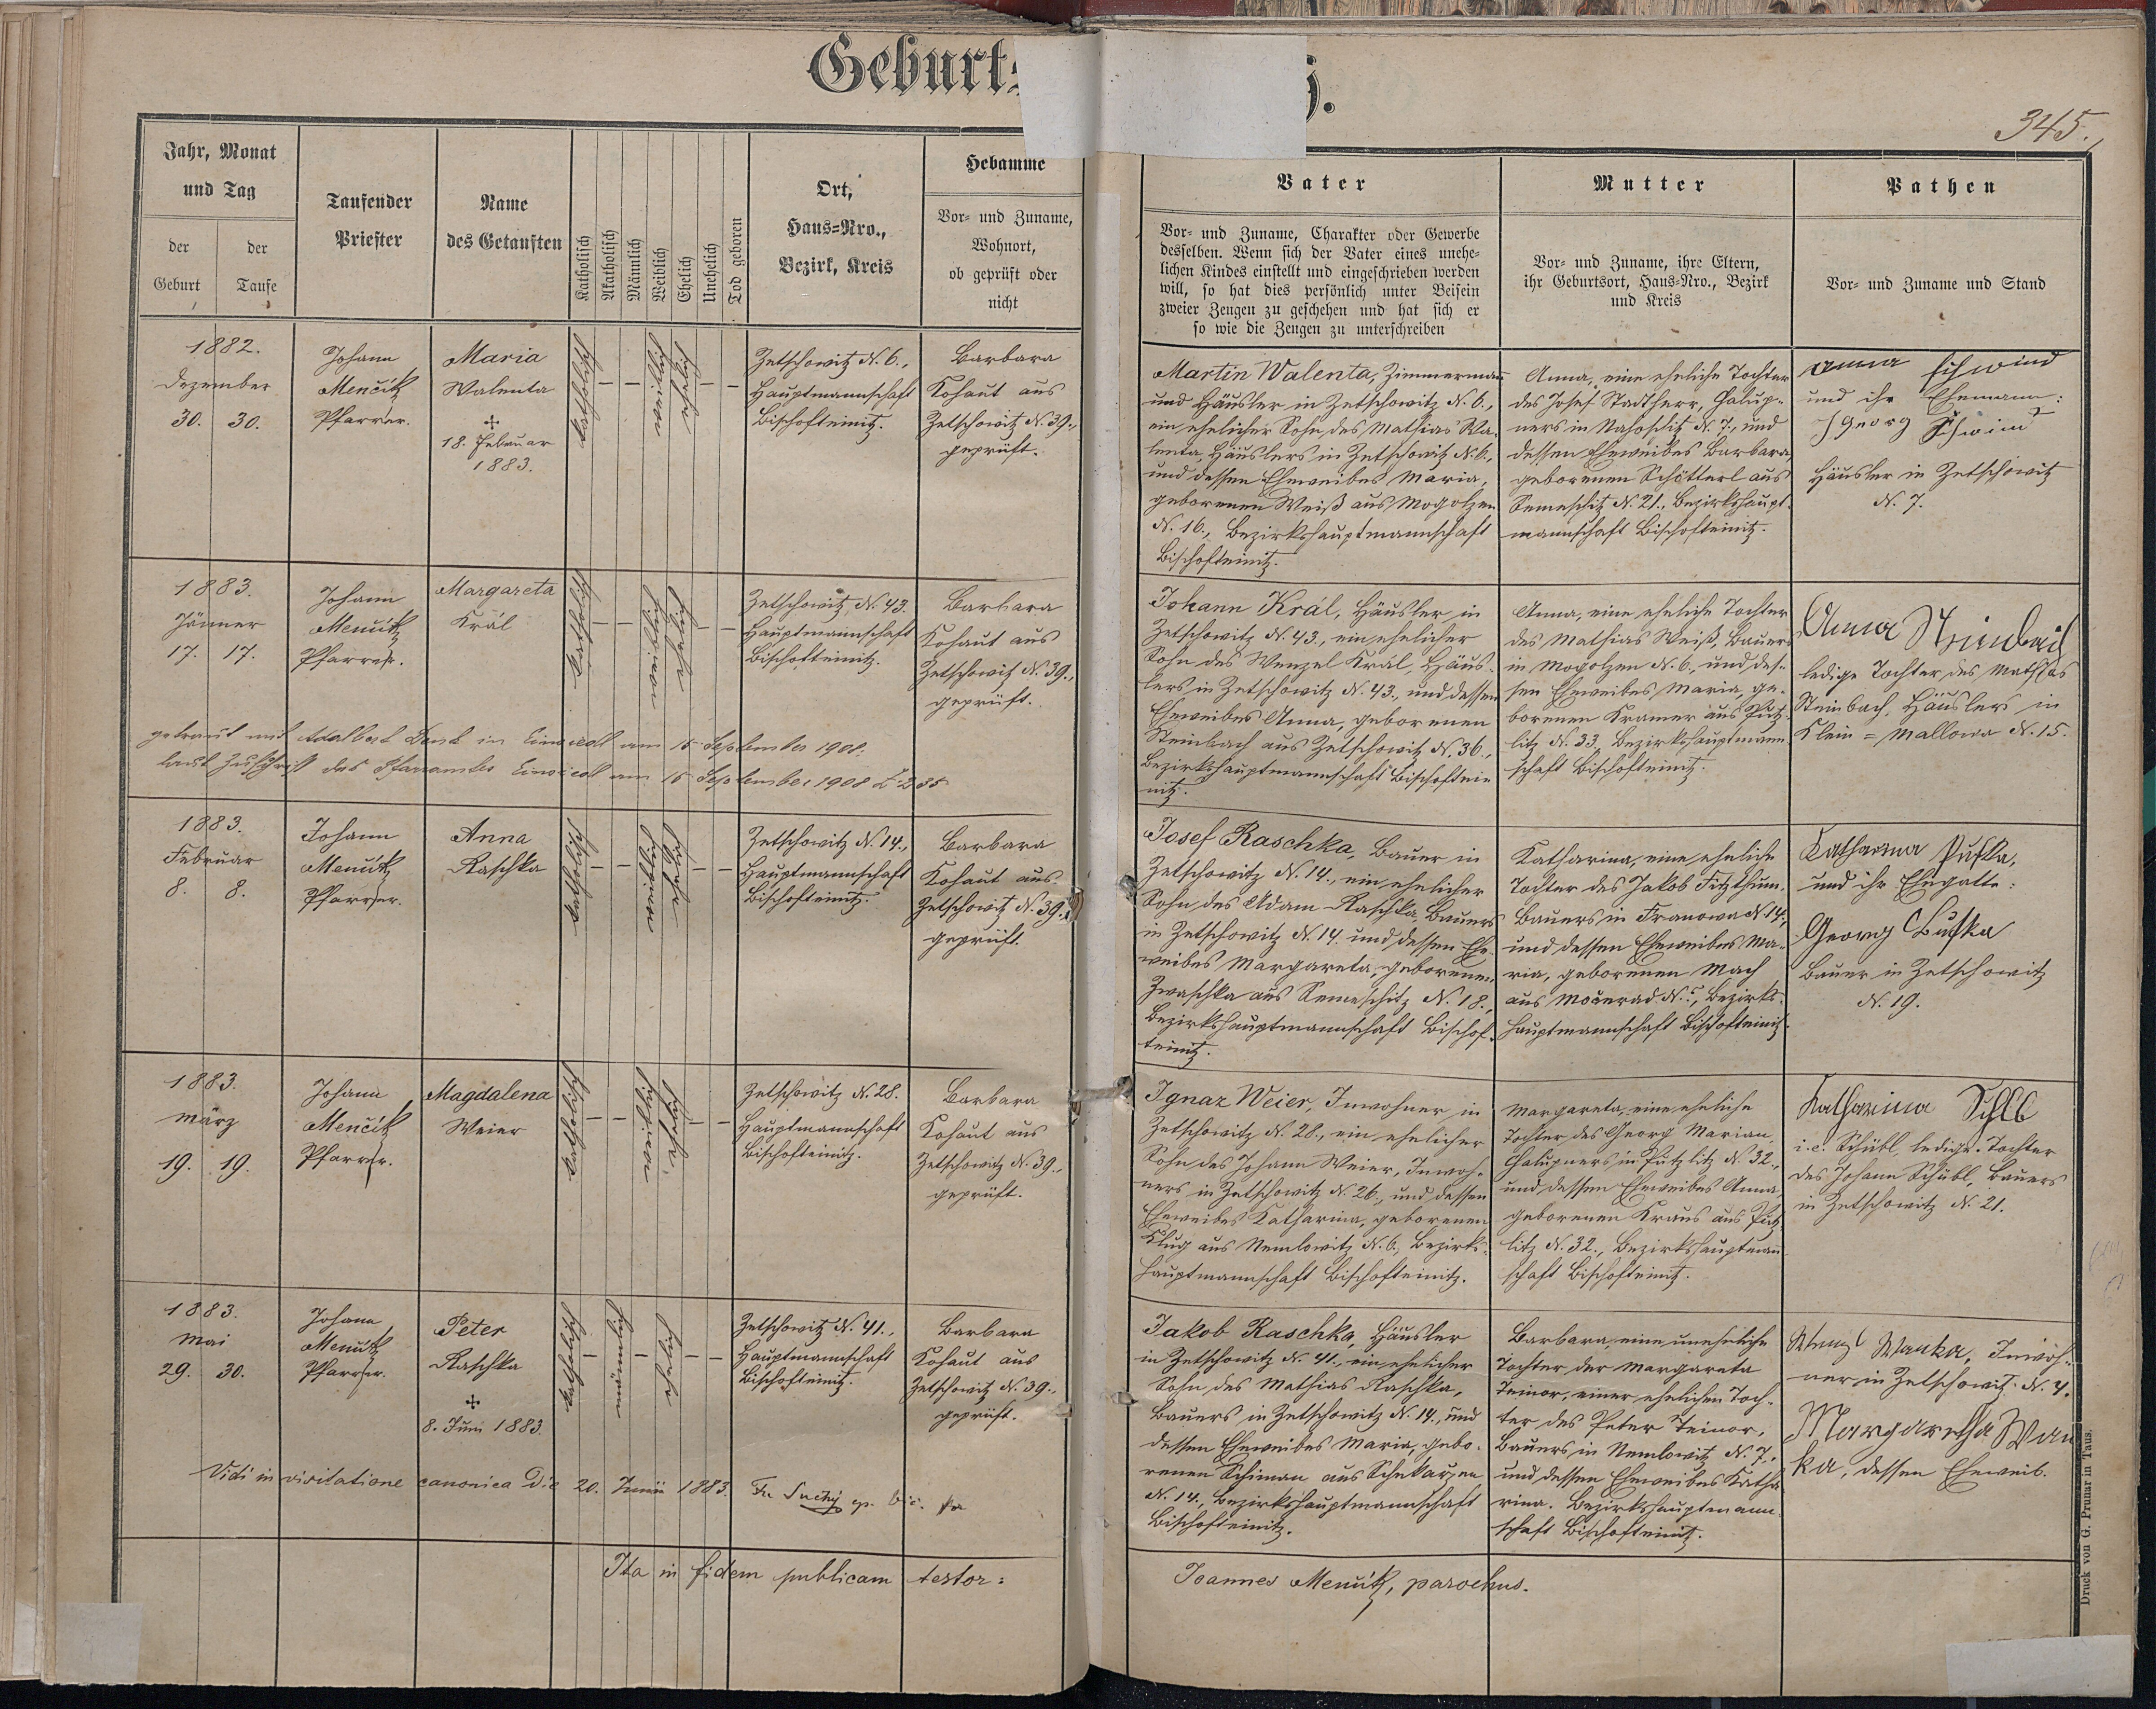 Geburts
345.
Jahr, Monat
und Tag
der
Geburt
der
Taufe
Taufender
Priester
Name
des Getauften
Katholisch
Akatholisch
Männlich
Weiblich
Ehelich
Unehelich
Tod geboren
Ort,
Haus-Nro.,
Bezirk, Kreis
Hebamme
Vor- und Zuname,
Wohnort,
ob geprüft oder
nicht
Vater
Vor- und Zuname, Charakter oder Gewerbe
desselben. Wenn sich der Vater eines unehe-
lichen Kindes einstellt und eingeschrieben werden
will, so hat dies persönlich unter Beisein
zweier Zeugen zu geschehen und hat sich er
so wie die Zeugen zu unterschreiben
Mutter
Vor- und Zuname, ihre Eltern,
ihr Geburtsort, Haus-Nro., Bezirk
und Kreis
Pathen
Vor- und Zuname und Stand
1882.
Dezember
30. 30.
Johann
Menčik
Pfarrer.
Maria
Walenta
+
18. Februar
1883.
katholisch
weiblich
ehelich
Zetschowitz N. 6.,
Hauptmannschaft
Bischofteinitz.
Barbara
Kohaut aus
Zetschowitz N. 39.,
geprüft.
Martin Walenta, Zimmermann
und Häusler in Zetschowitz N. 6.,
ein ehelicher Sohn des Mathias Wa-
lenta, Häuslers in Zetschowitz N. 6.,
und dessen Eheweibes Maria,
geborenen Weiß aus Mogolzen
N. 16., Bezirkshauptmannschaft
Bischofteinitz.
Anna, eine eheliche Tochter
des Josef Stadtherr, Chalup-
ners in Nahoschitz N. 7., und
dessen Eheweibes Barbara
geborenen Schötterl aus
Semeschitz N. 21., Bezirkshaupt-
mannschaft Bischofteinitz.
Anna Schwind
und ihr Ehemann:
Georg Schwind
Häusler in Zetschowitz
N. 7.
1883.
Jänner
17. 17.
Johann
Menčik
Pfarrer.
Margareta
Král
katholisch
weiblich
ehelich
Zetschowitz, N. 43.
Hauptmannschaft
Bischofteinitz.
Barbara
Kohaut aus
Zetschowitz N. 39.,
geprüft.
getraut mit Adalbert in am 15 September 190
laut Zuschrift des Pfarramtes am 15 September 1908 Z. 235
Johann Král, Häusler in
Zetschowitz N. 43., ein ehelicher
Sohn des Wenzel Král, Häus-
lers in Zetschowitz N. 43., und dessen
Eheweibes Anna, geborenen
Steinbach aus Zetschowitz N. 36.,
Bezirkshauptmannschaft Bischoftei-
nitz.
Anna, eine eheliche Tochter
des Mathias Weiß, Bauers
in Mogolzen N. 6., und des-
sen Eheweibes Maria, ge-
borenen Kramer aus Pütz-
litz N. 33., Bezirkshauptmann-
schaft Bischofteinitz.
Anna Steinbach
ledige Tochter des Mathias
Steinbach, Häuslers in
Klein = Mallowa N. 15.
1883.
Februar
8. 8.
Johann
Menčik
Pfarrer.
Anna
Raschka
katholisch
weiblich
ehelich
Zetschowitz N. 14.,
Hauptmannschaft
Bischofteinitz.
Barbara
Kohaut aus
Zetschowitz N. 39.,
geprüft.
Josef Raschka, Bauer in
Zetschowitz N. 14., ein ehelicher
Sohn des Adam Raschka, Bauers
in Zetschowitz N. 14. und dessen Ehe-
weibes Margareta, geborenen
Zwaschka aus Semeschitz N. 18.,
Bezirkshauptmannschaft Bischof-
teinitz.
Katharina, eine eheliche
Tochter des Jakob Fitzthum,
Bauers in Franowa N. 14.,
und dessen Eheweibes Ma-
ria, geborenen Mach
aus Močerad N. 5., Bezirks-
hauptmannschaft Bischofteinitz.
Katharina Pufka,
und ihr Ehegatte:
Georg Bufka
Bauer in Zetschowitz
N. 19.
1883.
März
19. 19.
Johann
Menčik
Pfarrer.
Magdalena
Weier
katholisch
weiblich
ehelich
Zetschowitz N. 28.
Hauptmannschaft
Bischofteinitz.
Barbara
Kohaut aus
Zetschowitz N. 39.,
geprüft.
Ignaz Weier, Inwohner in
Zetschowitz N. 28., ein ehelicher
Sohn des Johann Weier, Inwoh-
ners in Zetschowitz N. 26., und dessen
Eheweibes Katharina, geborenen
Klug aus Nemlowitz N. 6., Bezirks-
hauptmannschaft Bischofteinitz.
Margareta, eine eheliche
Tochter des Georg Marian,
Chalupners in Pützlitz N. 32.,
und dessen Eheweibes Anna,
geborenen Kraus aus Pütz-
litz N. 32., Bezirkshauptmann-
schaft Bischofteinitz.
Katharina
i. e. Schübl, ledige Tochter
des Johann Schübl, Bauers
in Zetschowitz N. 21.
1883.
Mai
29. 30.
Johann
Menčik
Pfarrer.
Peter
Raschka
+
8. Juni 1883.
katholisch
männlich
ehelich
Zetschowitz N. 41.,
Hauptmannschaft
Bischofteinitz.
Barbara
Kohaut aus
Zetschowitz N. 39.,
geprüft.
Jakob Raschka, Häusler
in Zetschowitz N. 41., ein ehelicher
Sohn des Mathias Raschka,
Bauers in Zetschowitz N. 14., und
dessen Eheweibes Maria, gebo-
renen Schiman aus Schekarzen
N. 14., Bezirkshauptmannschaft
Bischofteinitz.
Barbara, eine uneheliche
Tochter der Margareta
Teinor, einer ehelichen Toch-
ter des Peter Teinor,
Bauers in Nemlowitz N. 7.,
und dessen Eheweibes Katha-
rina. Bezirkshauptmann-
schaft Bischofteinitz.
Wenzl Wanka, Inwoh-
ner in Zetschowitz N. 4.
Margaretha Wan
ka, dessen Eheweib.
Vidi in visitatione canonica Die 20. Junii 1883. Fr Suchý ep. vic.
Ita in fidem publicam testor:
Joannes Menčik, parochus.
Druck von G. Prunar in Taus.